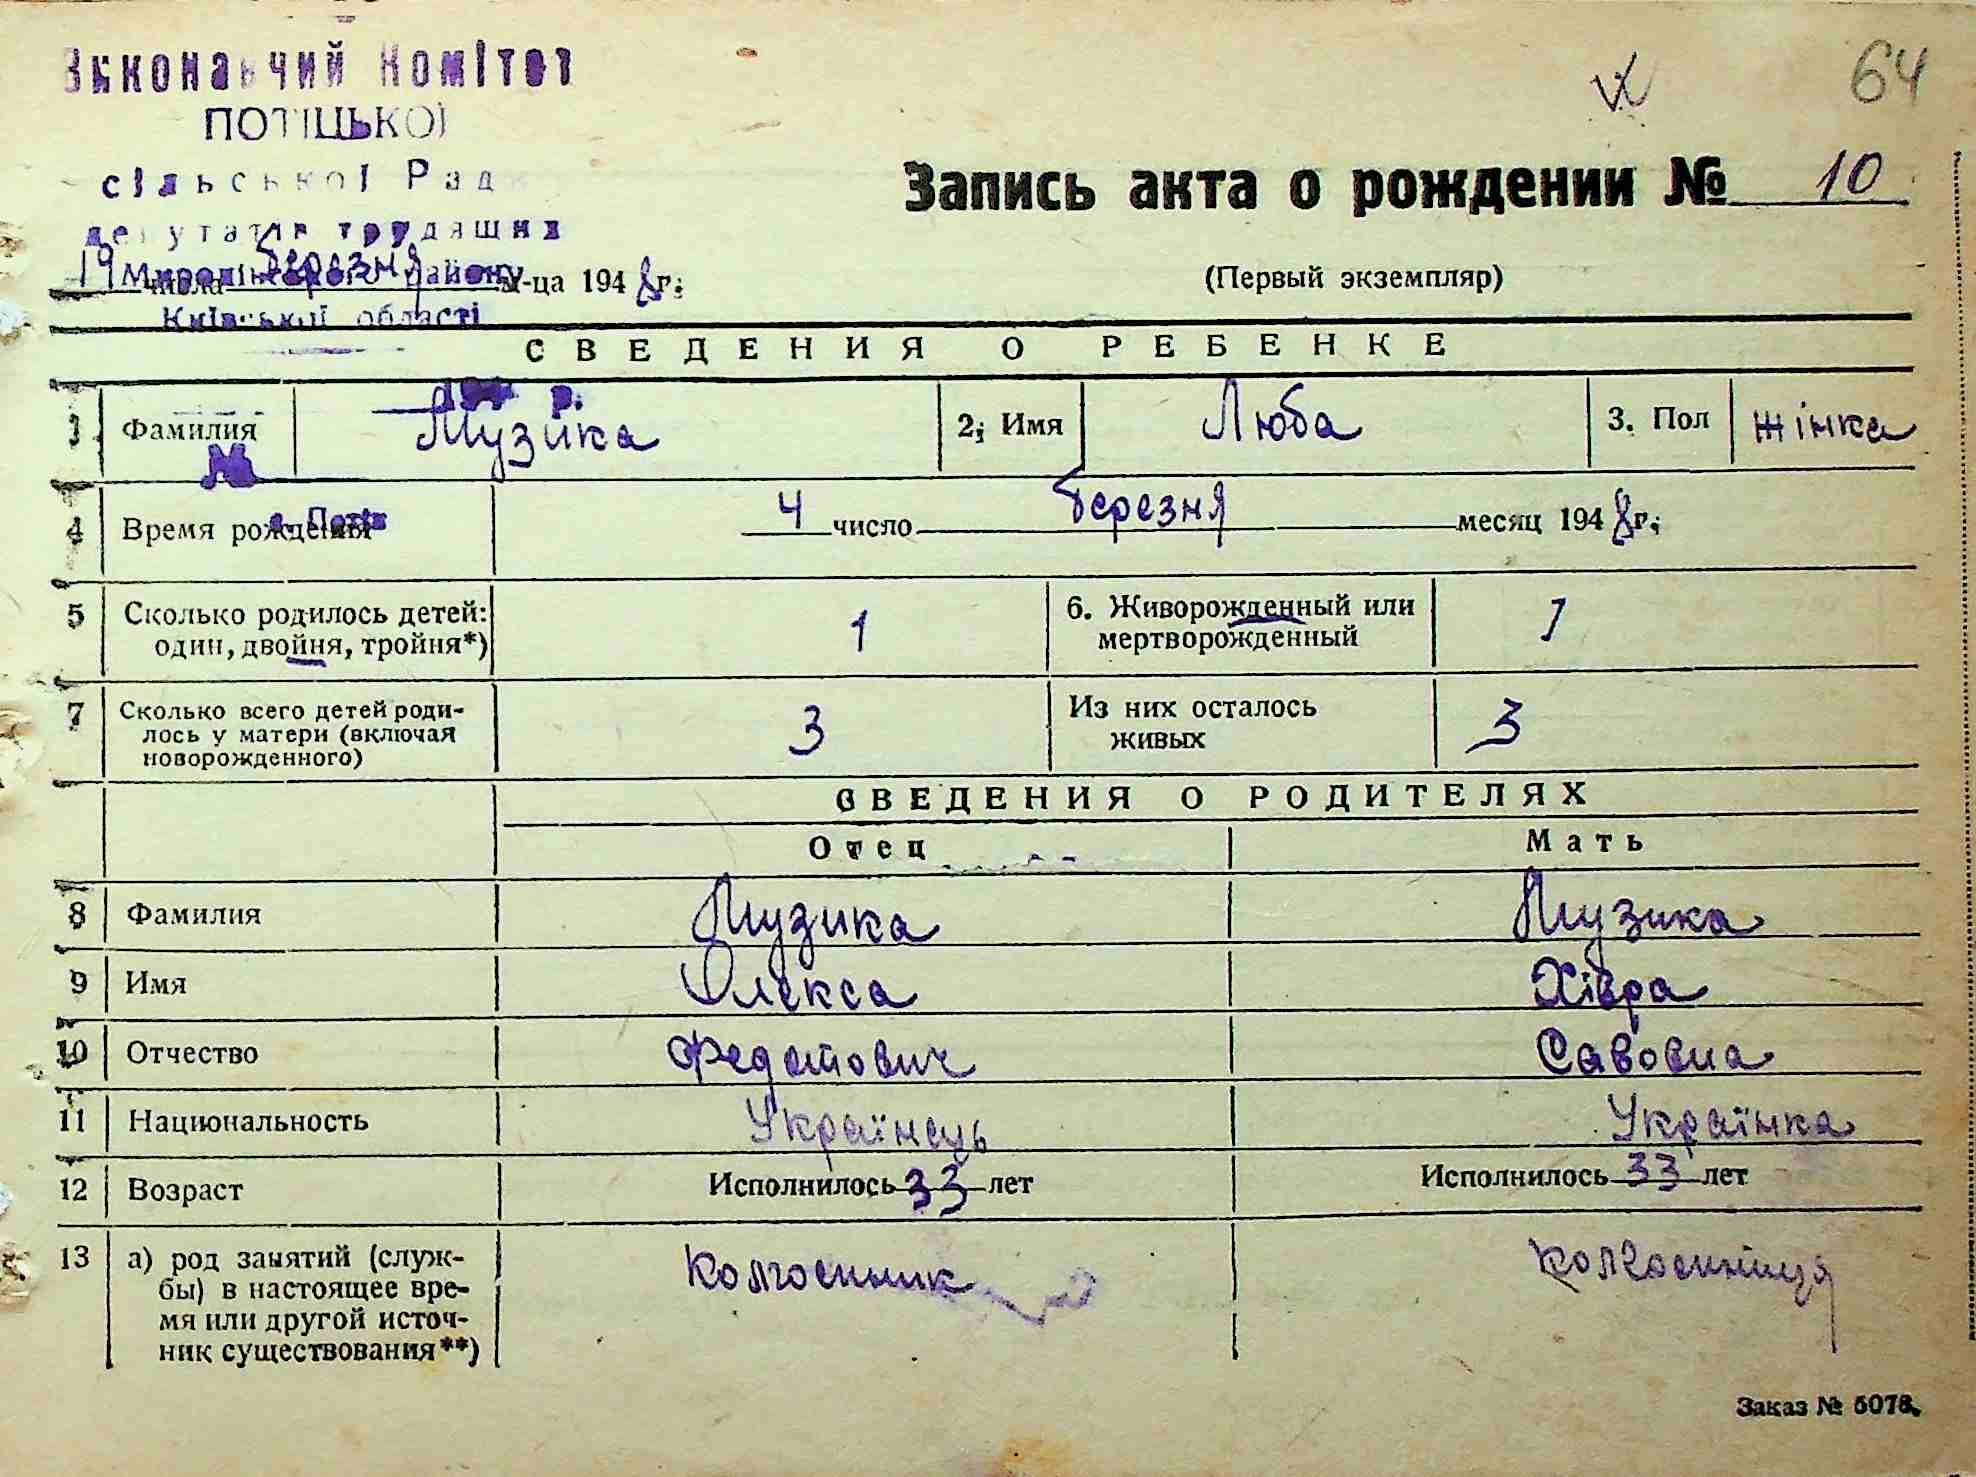 Виконавчий Комітет
64
ПОТІЦЬКОЇ
сільської Рад
Запись акта о рождении № 10
депутатів трудящих
Миронівського району
19 числа березня м-ца 1948 г.
(Первый экземпляр)
Київської області
СВЕДЕНИЯ О РЕБЕНКЕ
194 р.
1 Фамилия Музика 2. Имя Люба 3. Пол жінка
№
с. Потік
4 Время рождения 4 число березня месяц 1948 г.
5 Сколько родилось детей: один, двойня, тройня*) 1 6. Живорожденный или мертворожденный 1
7 Сколько всего детей роди-
лось у матери (включая
новорожденного) 3 Из них осталось живых 3
СВЕДЕНИЯ О РОДИТЕЛЯХ
Отец Мать
8 Фамилия Музика Музика
9 Имя Олекса Хівра
10 Отчество Федотович Савовна
11 Национальность Українець Українка
12 Возраст Исполнилось 33 лет Исполнилось 33 лет
13 а) род занятий (служ-
бы) в настоящее вре-
мя или другой источ-
ник существования**) Колгоспник колгоспниця
Заказ № 5078.